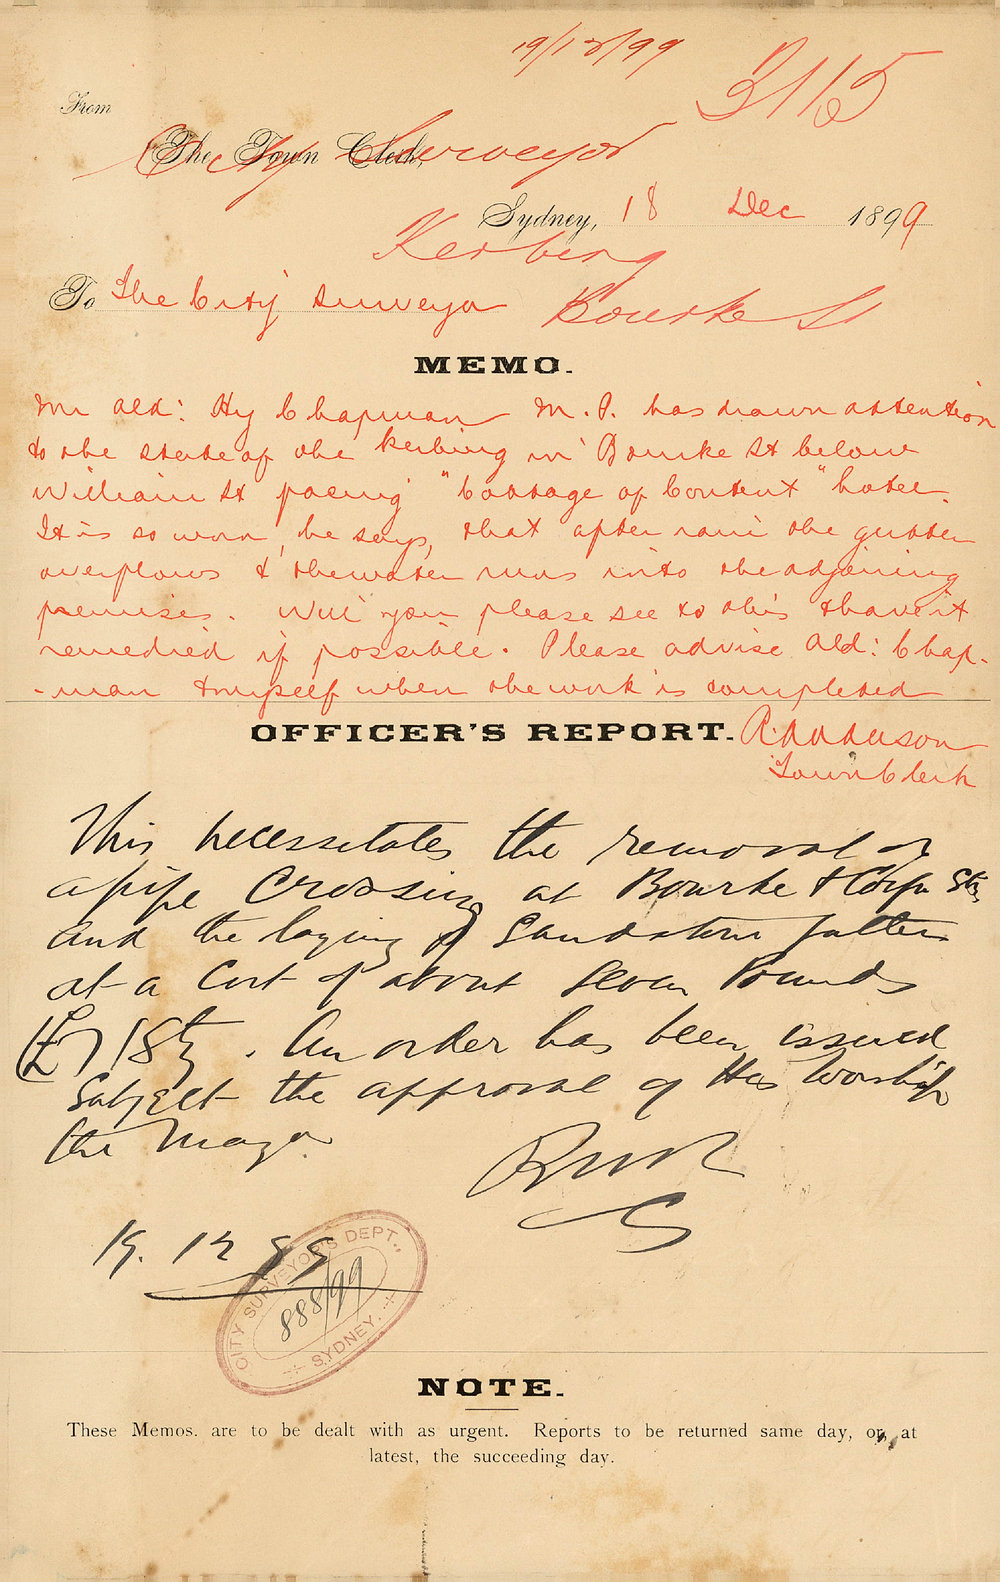 19/12/99
3115
From
The Town Clerk,
City Surveyor
Sydney, 18 Dec 1899
Kerbing
To The City Surveyor
Bourke St
MEMO.
Mr Ald: Hy Chapman M.P. has drawn attention
to the state of the kerbing in Bourke St below
William St facing "Cottage of Content" hotel.
It is so worn, he says, that after rain the gutter
overflows & the water runs into the adjoining
premises. Will you please see to this & have it
remedied if possible. Please advise Ald: Chap-
-man & myself when the work is completed
OFFICER'S REPORT.
Town Clerk
This necessitates the removal of
a pipe Crossing at Bourke & Sts
and the laying of Sandstone
at a Cost of about Seven Pounds
(£7) . An order has been issued
Subject the approval of His Worship
the Mayor.
19.12.99
CITY SURVEYOR'S DEPT.,
888/99
SYDNEY.
NOTE.
These Memos. are to be dealt with as urgent. Reports to be returned same day, or, at
latest, the succeeding day.